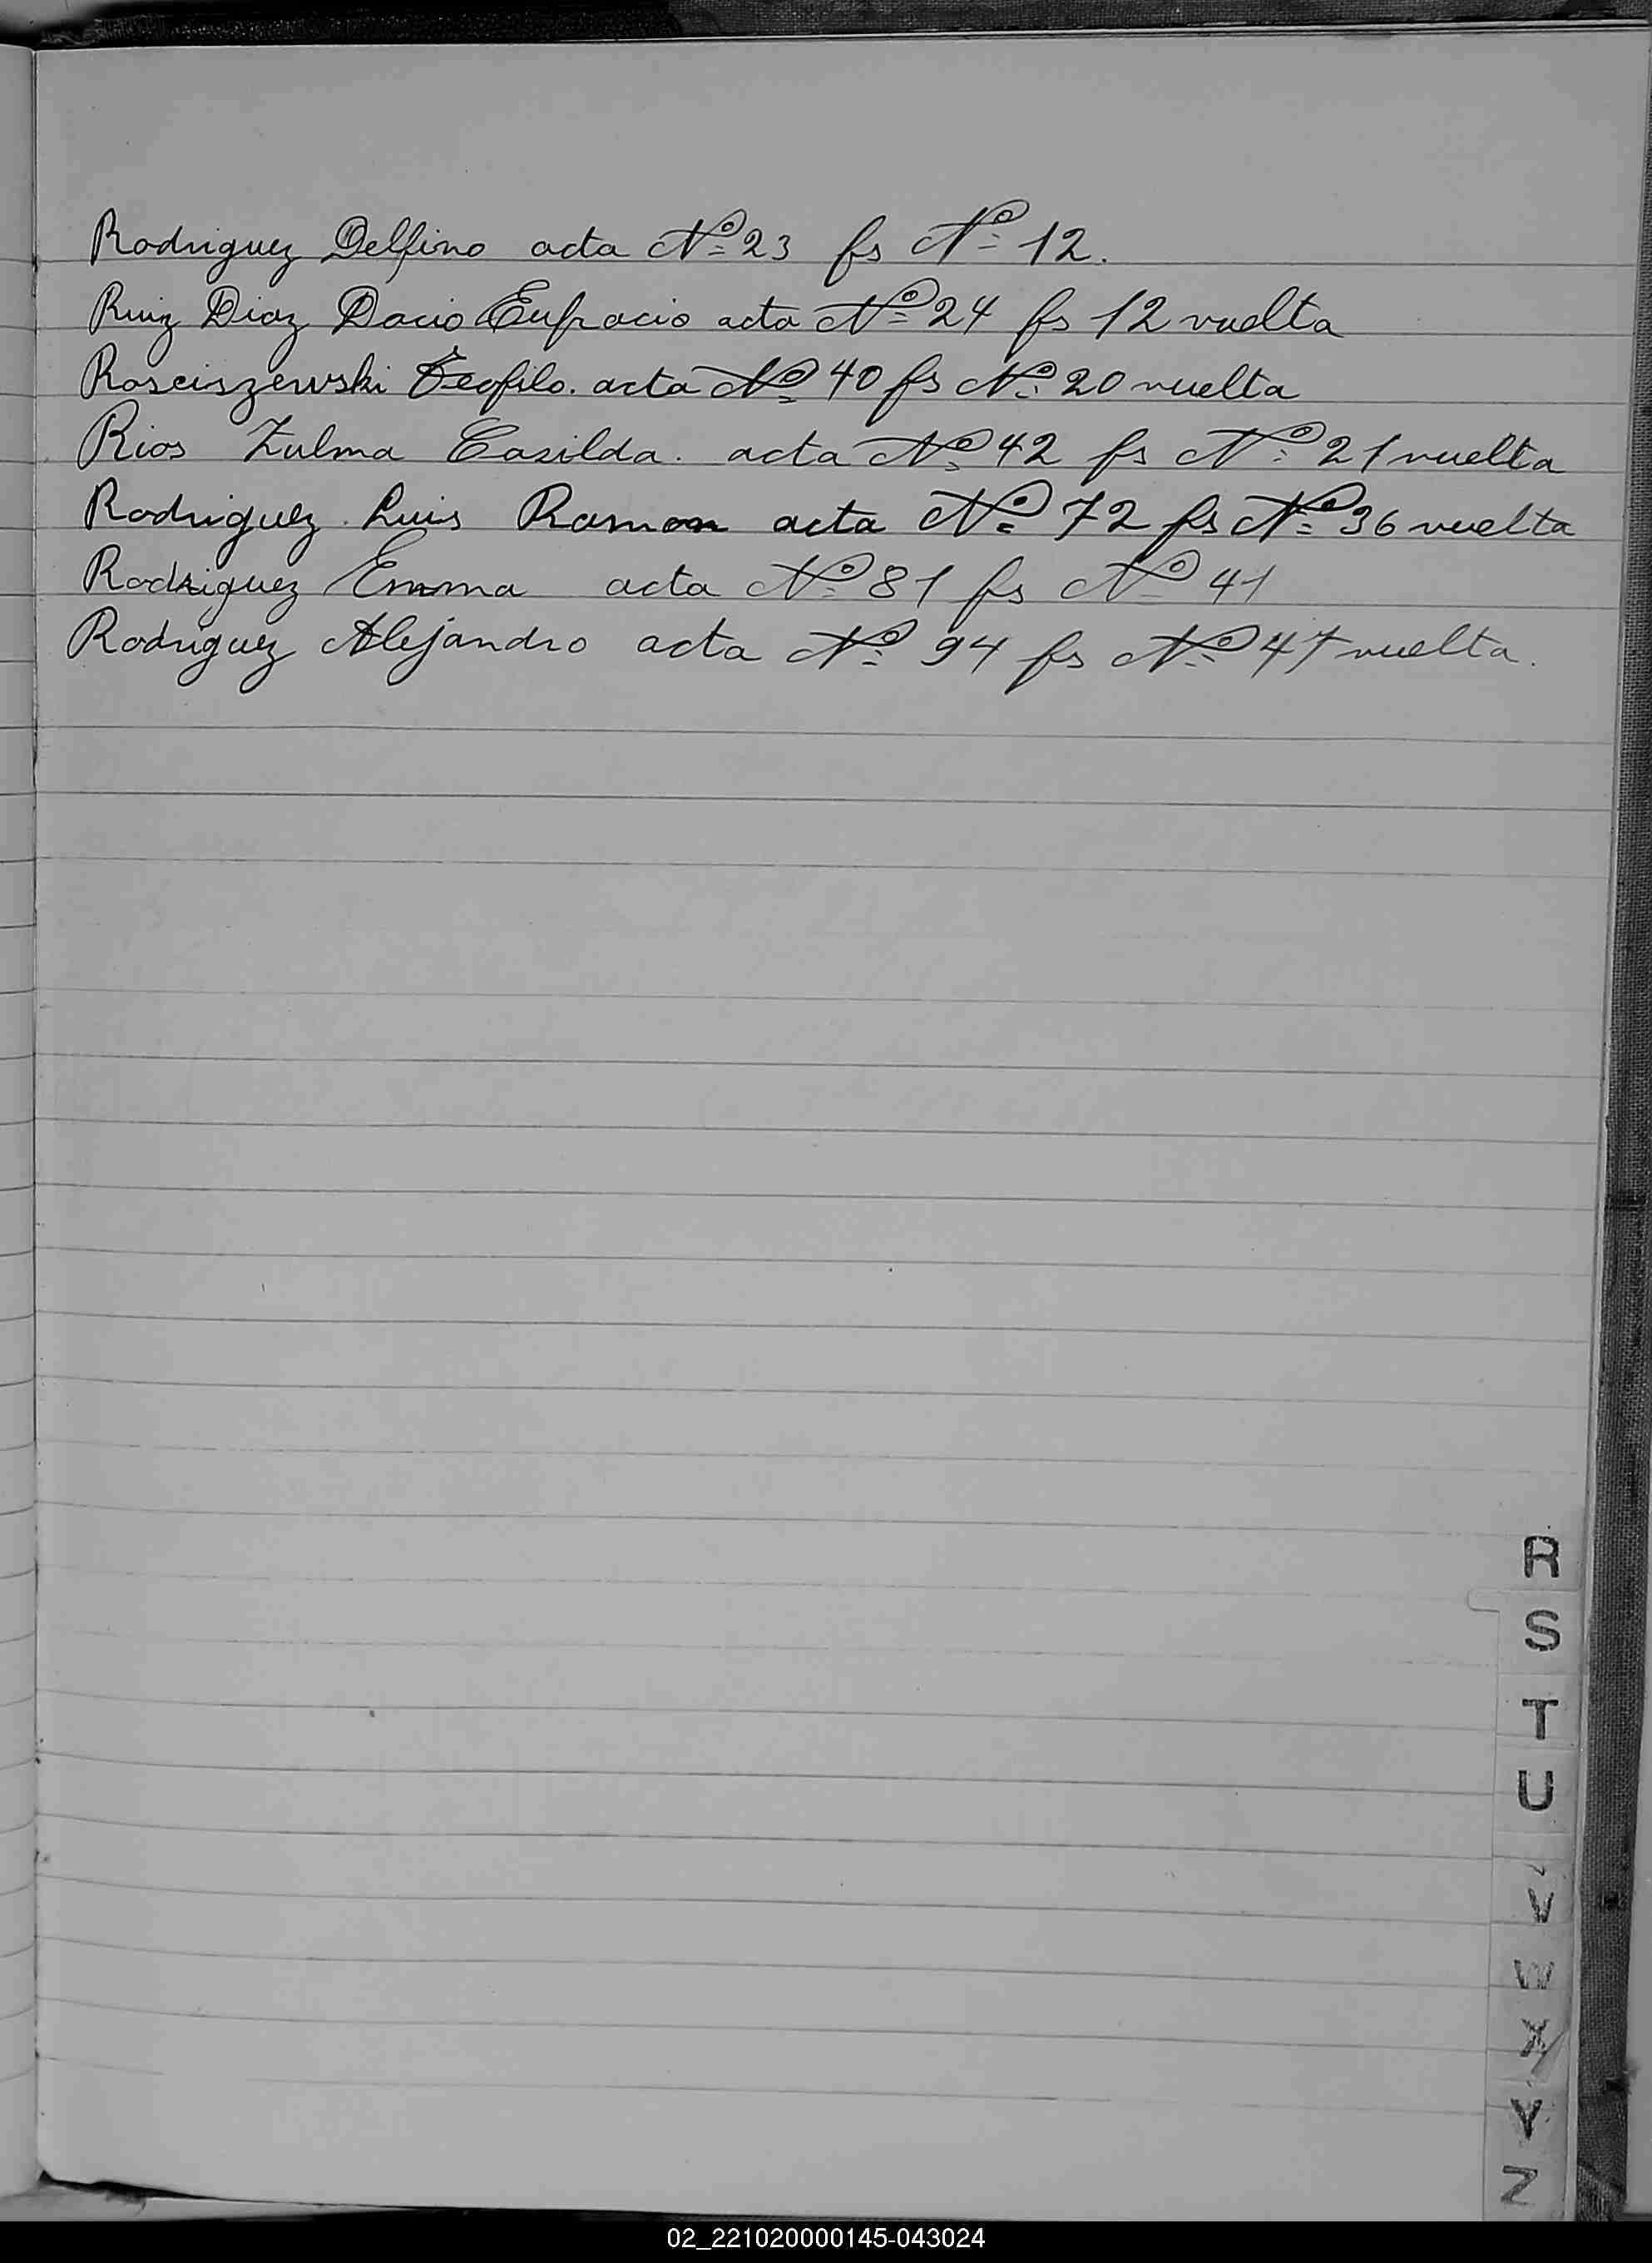 Rodriguez Delfino acta Nº 23 fs Nº 12.
Ruiz Diaz Dacio Eufracio acta Nº 24 fs 12 vuelta
Rosciszewski Teofilo. acta Nº 40 fs Nº 20 vuelta
Rios Zulma Casilda. acta Nº 42 fs Nº 21 vuelta
Rodriguez Luis Ramon acta Nº 72 fs Nº 36 vuelta
Rodriguez Emma acta Nº 81 fs Nº 41
Rodriguez Alejandro acta Nº 94 fs Nº 47 vuelta.
R
S
T
U
V
W
X
Y
Z
02_221020000145-043024